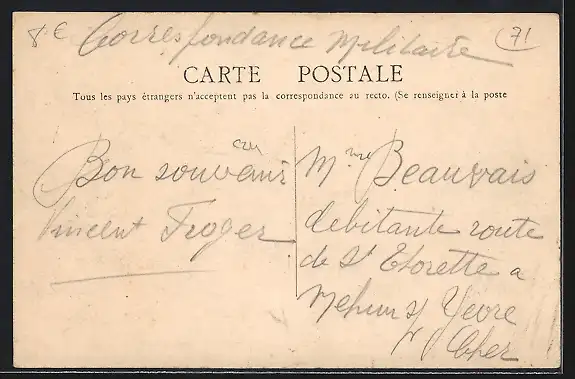 8€ Correspondance Militaire 71
CARTE POSTALE
Tous les pays étrangers n'acceptent pas la correspondance au recto. (Se renseigner à la poste
Bon souvenir
Vincent Froger
Mme Beauvais
debitante route
de St Florette a
Mehun s/ Yevre
Cher